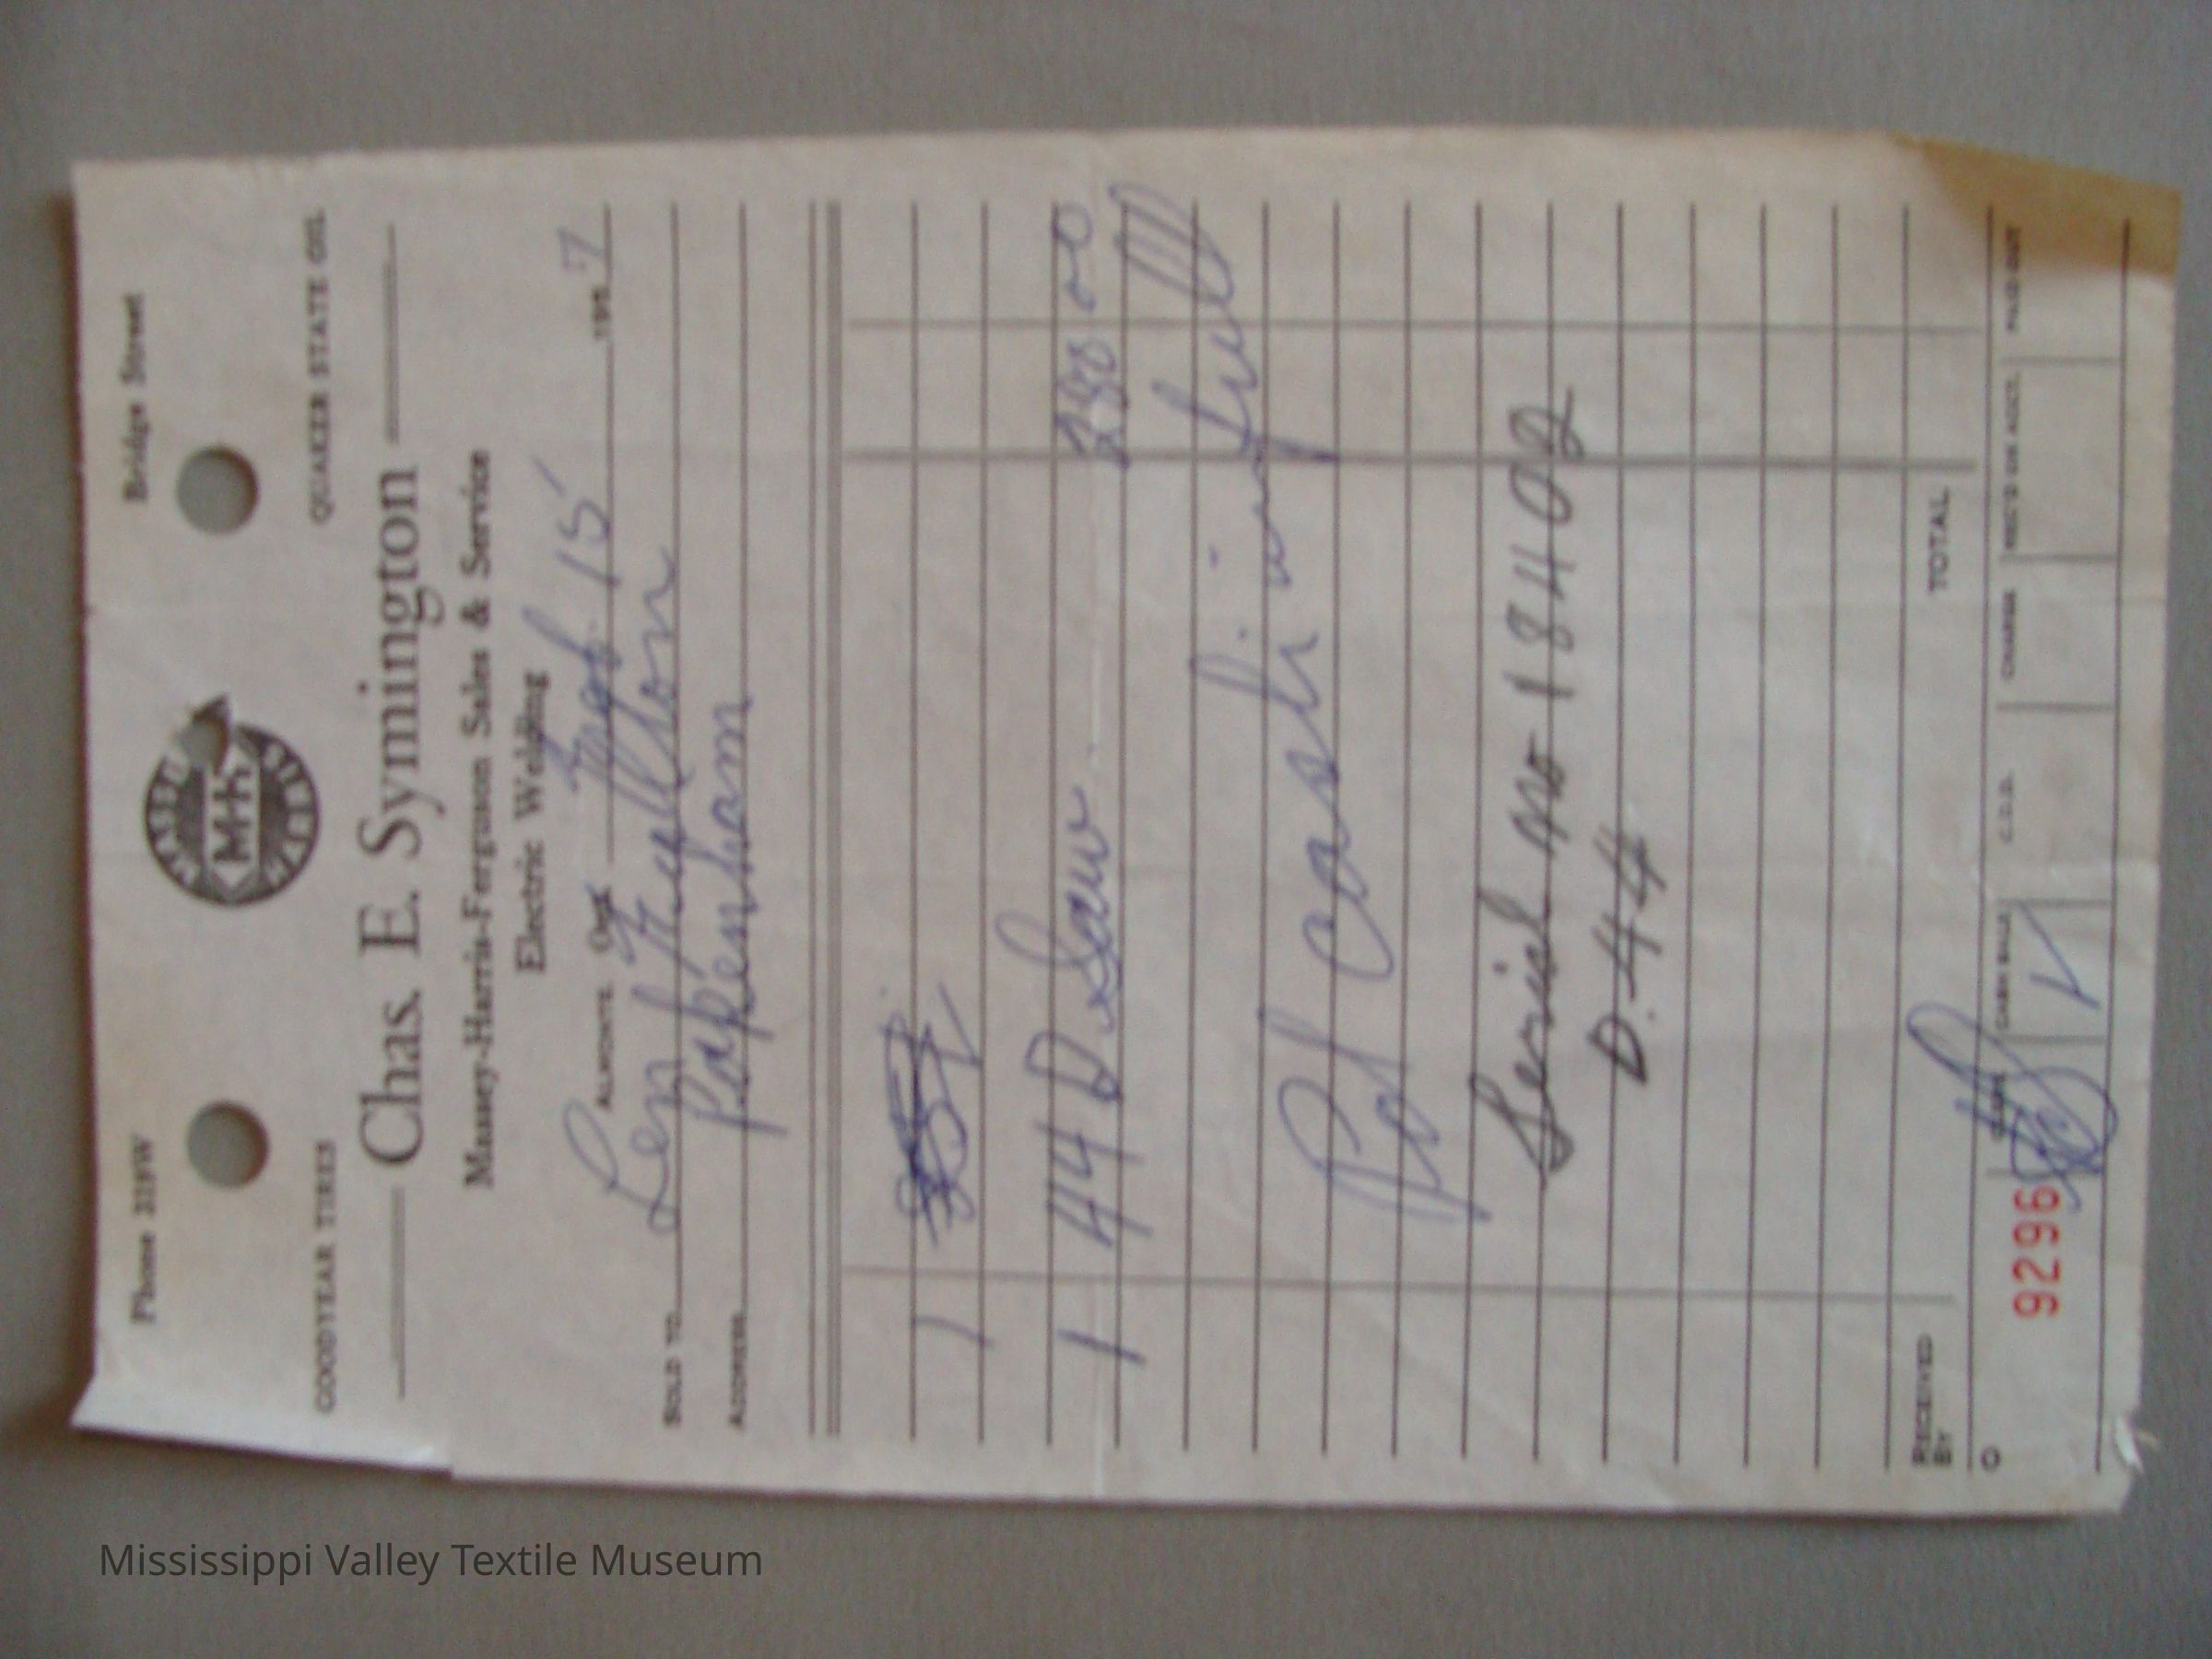 Phone 219W Bridge Street
MASSEY
M-H
HARRIS
GOODYEAR TIRES QUAKER STATE OIL
Chas. E. Symington
Massey-Harris-Ferguson Sales & Service
Electric Welding
ALMONTE, Ont. 15 1957
SOLD TO Len
ADDRESS Pakenham
1
1 44 D. Saw 280 00
Pd Cash in full
Serial No 18402
D.44
RECEIVED BY TOTAL
CASH SALE C.O.D. CHARGE REC'D ON ACCT. PAID OUT
9296
Mississippi Valley Textile Museum